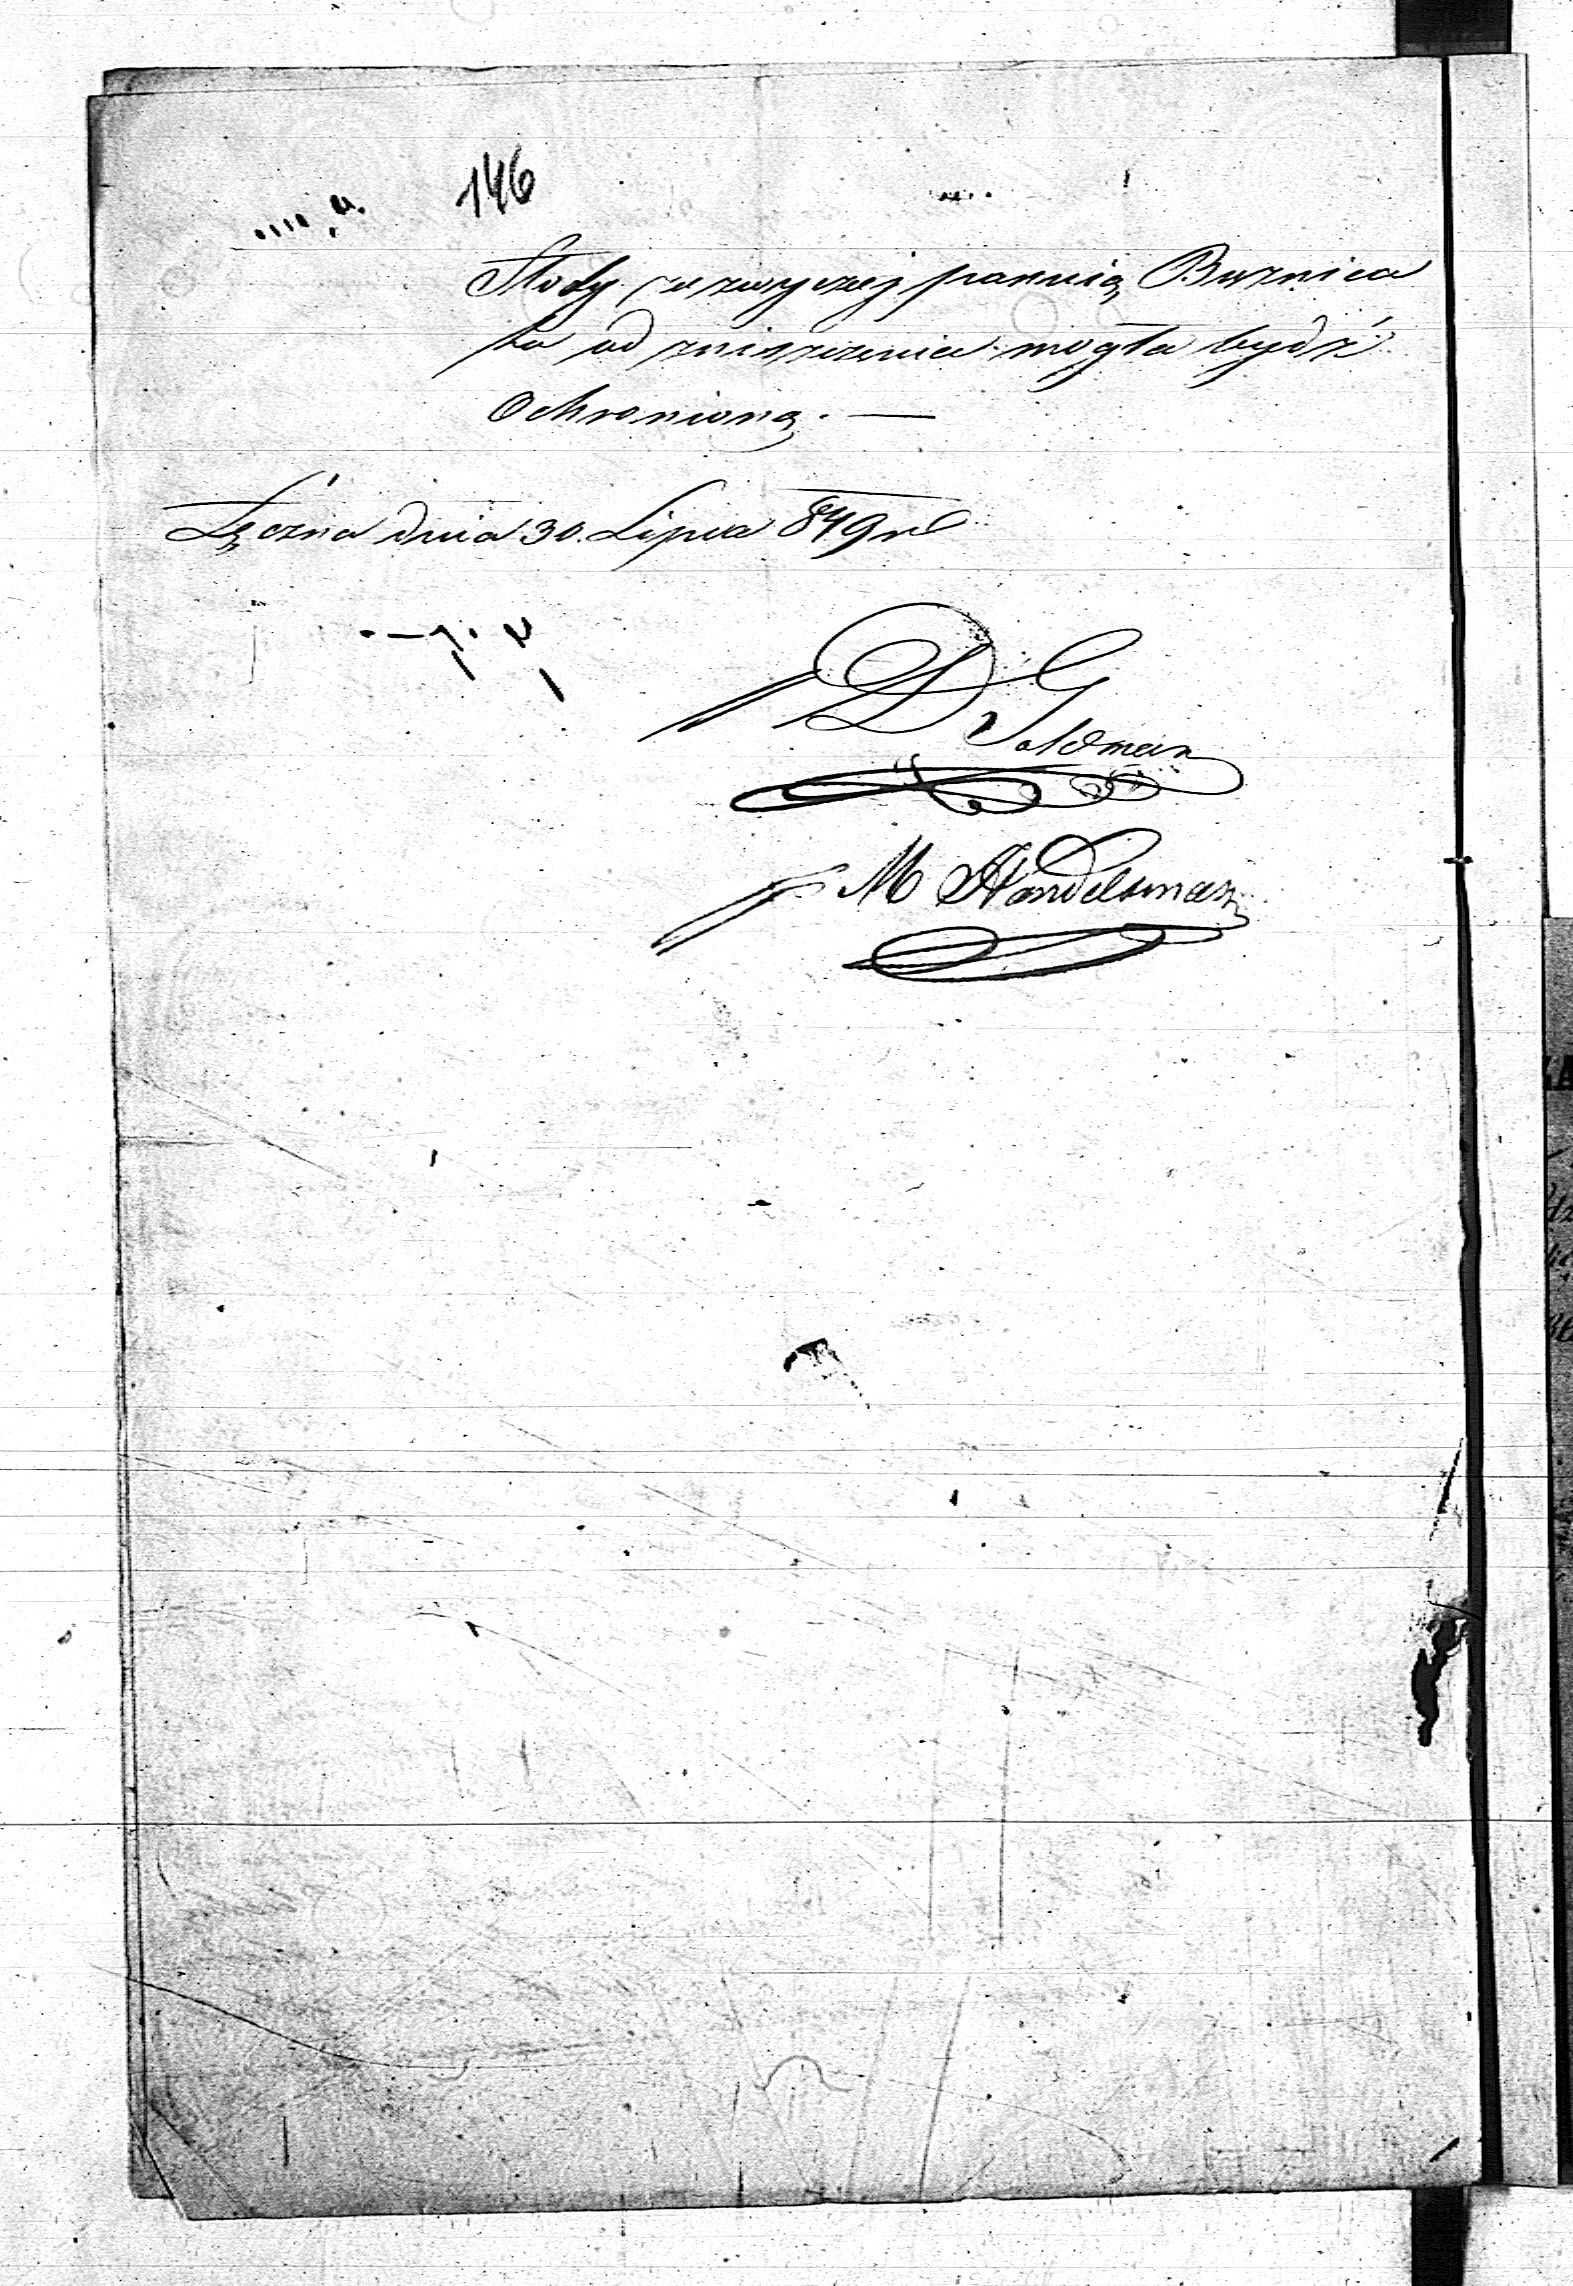 146
Szkody zazwyczaj pannią Bóznica
ta od zniszczenia mogła bydź
Ochronioną. —
Łęczna dnia 30. Lipca 849 r
D. Goldman
M Handelsman